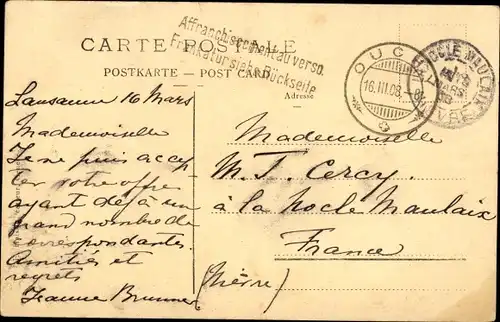 CARTE POSTALE
POSTKARTE – POST CARD
Affranchissement au verso.
Frankatur siehe Rückseite
Adresse
OUCHY
16.III.08.–8
ROCHE MAULAIX
MARS
Lausanne 16 Mars
Mademoiselle
Je ne puis accep
ter votre offre
ayant déjà un
grand nombre de
correspondantes.
Amitiés et
regrets
Jeanne Brunner
Mademoiselle
M. T. Cercy.
à la Roche Maulaix
France
(Nièvre)